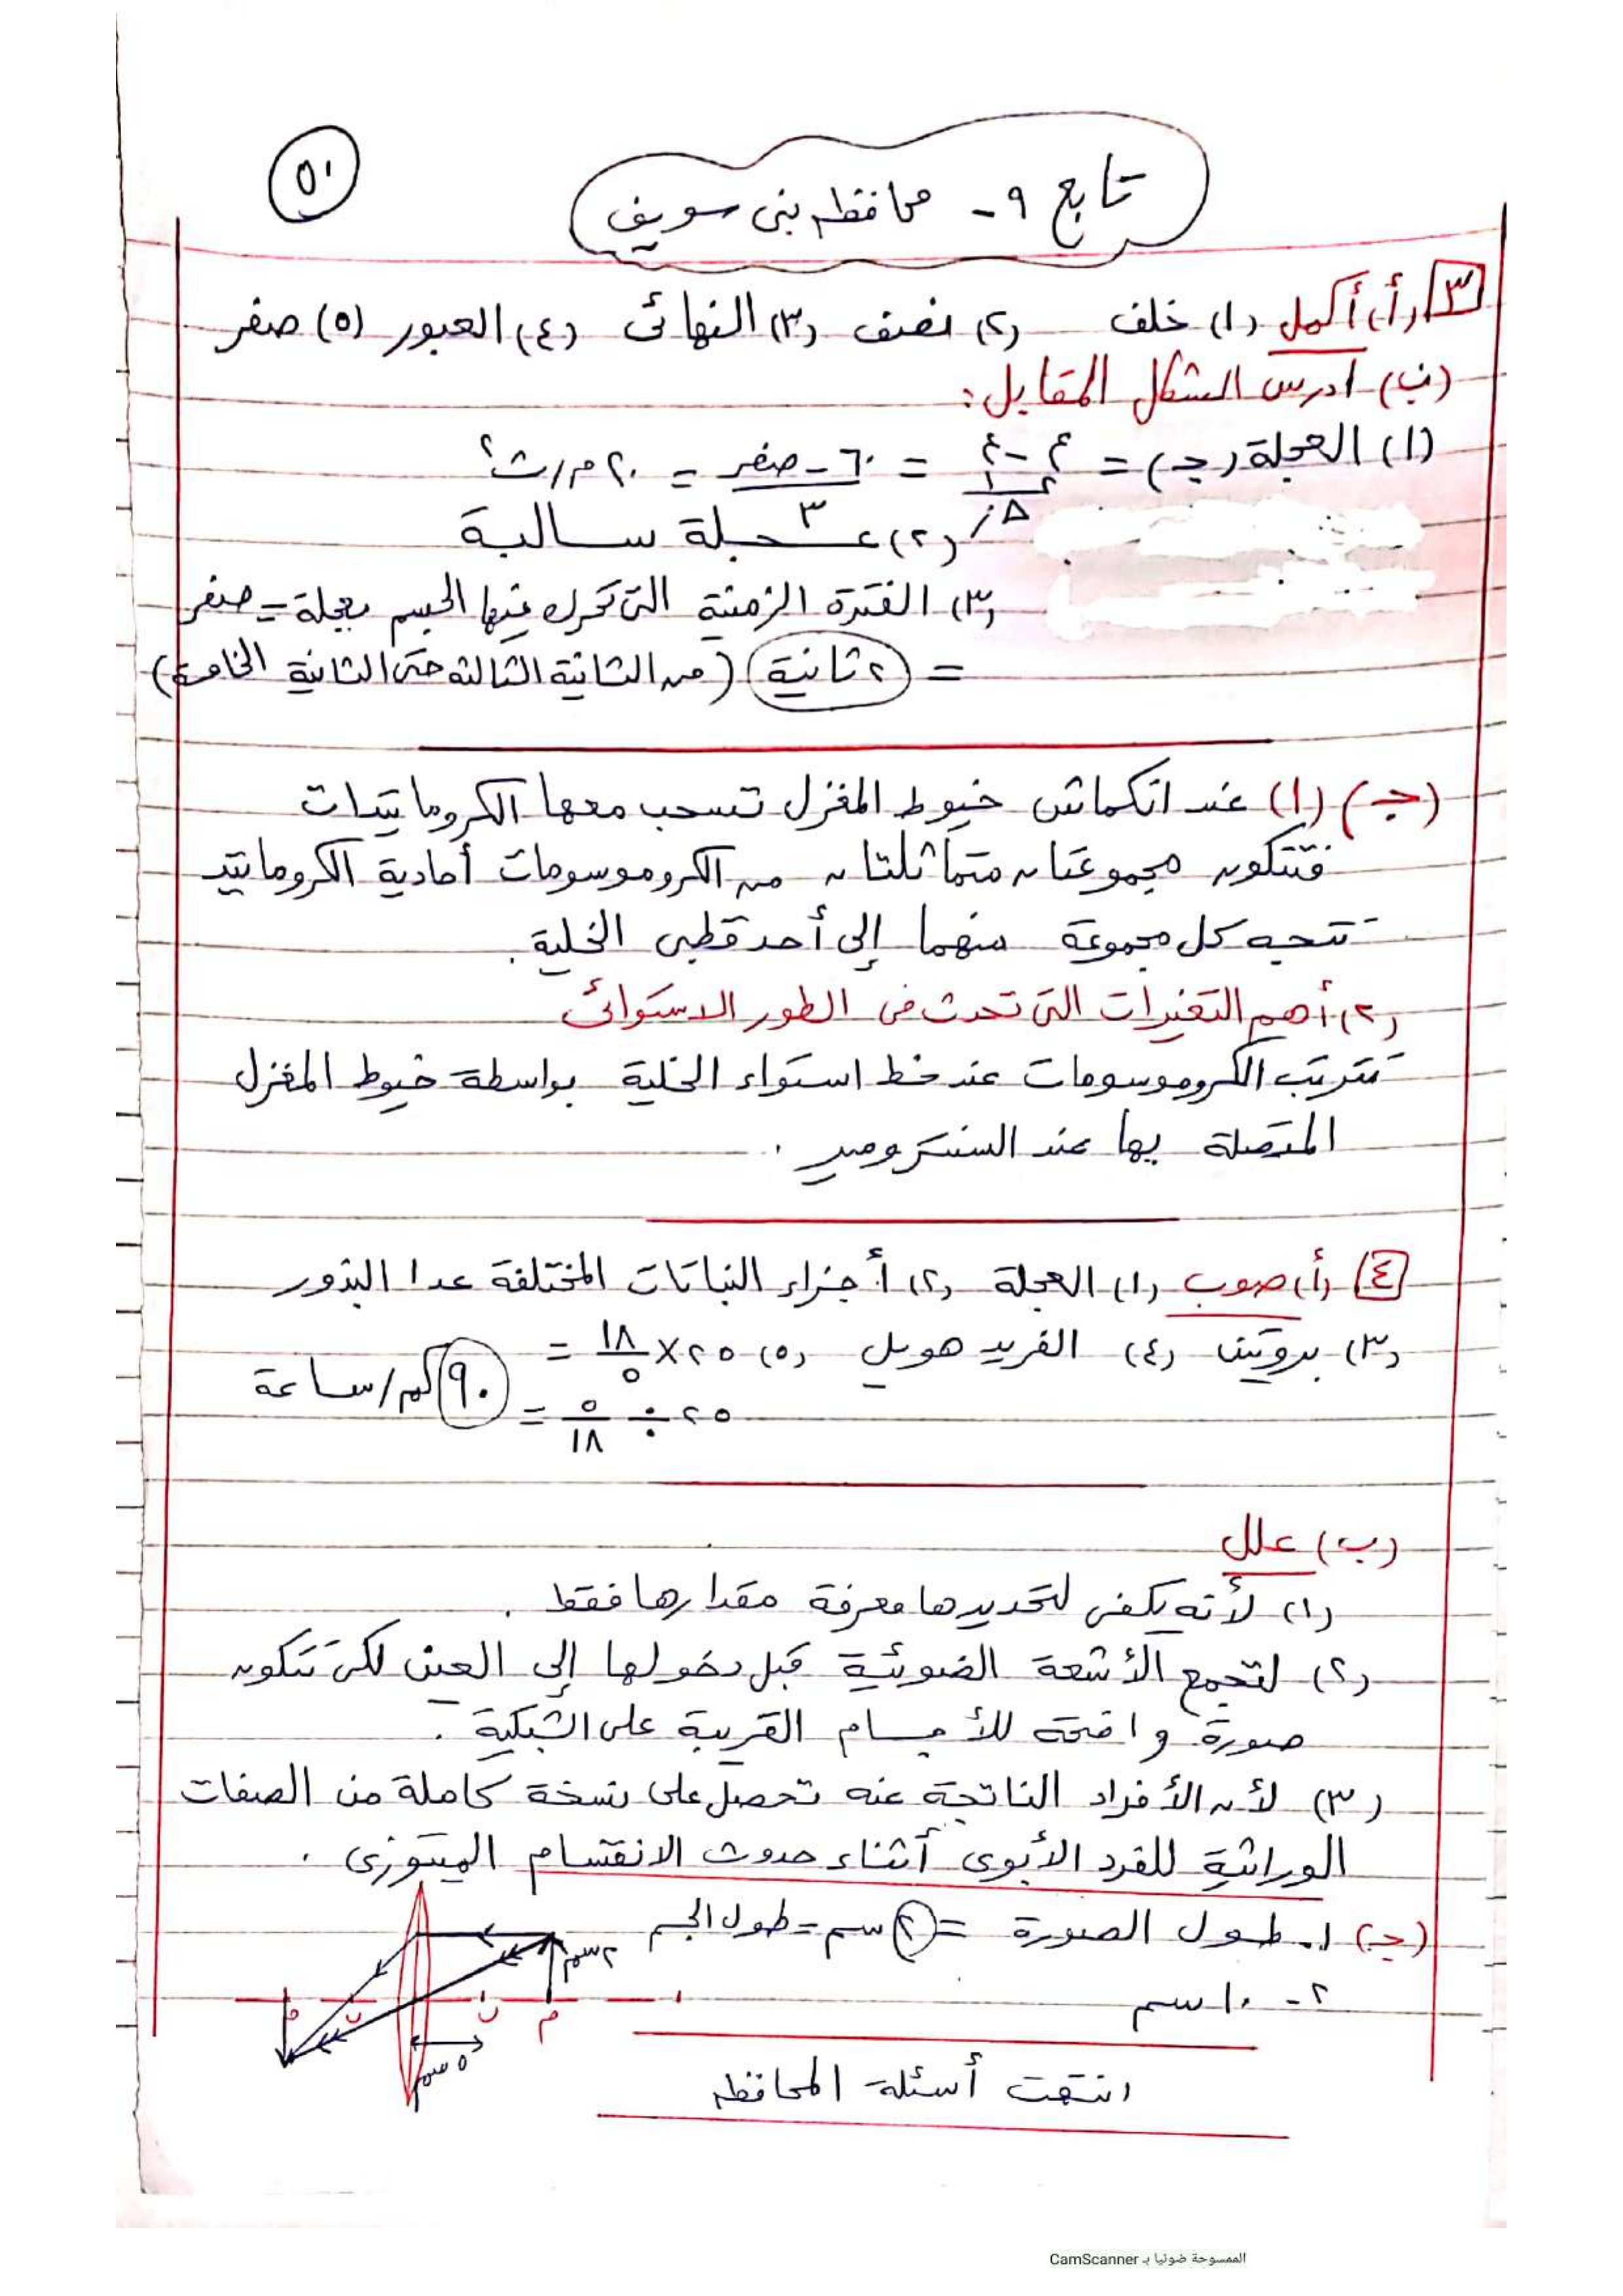 ٥٠
تابع ٩- محافظه بنى سويف
٣ (أ) أكمل (١) خلف (٢) نصف (٣) النهائى (٤) العبور (٥) صفر
(ب) ادرس الشكل المقابل:
(١) العجلة (جـ) = ع٢ - ع١ / Δز = ٦٠ - صفر / ٣ = ٢٠ م/ث٢
(٢) عجلة سالبة
(٣) الفترة الزمنية التى تحرك فيها الجسم بعجلة = صفر
= ٢ ثانية (من الثانية الثالثه حتى الثانية الخامسة)
(جـ) (١) عند انكماش خيوط المغزل تسحب معها الكروماتيدات
فتتكون مجموعتان متماثلتان من الكروموسومات أحادية الكروماتيد
تتجه كل مجموعة منهما إلى أحد قطبى الخلية.
(٢) أهم التغيرات التى تحدث فى الطور الاستوائى
تترتب الكروموسومات عند خط استواء الخلية بواسطة خيوط المغزل
المتصلة بها عند السنترومير.
٤ (أ) صوب (١) العجلة (٢) أجزاء النباتات المختلفة عدا البذور
(٣) بروتين (٤) الفريد هويل (٥) ٢٥ × ١٨/٥ =
٢٥ ÷ ٥/١٨ = ٩٠ كم/ساعة
(ب) علل
(١) لأنه يكفى لتحديدها معرفة مقدارها فقط.
(٢) لتجمع الأشعة الضوئية قبل دخولها إلى العين لكى تتكون
صورة واضحة للأجسام القريبة على الشبكية.
(٣) لأن الأفراد الناتجة عنه تحصل على نسخة كاملة من الصفات
الوراثية للفرد الأبوى أثناء حدوث الانقسام الميتوزى.
(جـ) ١. طول الصورة = ٢ سم = طول الجسم
٢ سم
٢- ١٠ سم
م ن ن م
٥ سم
انتهت أسئلة المحافظه
الممسوحة ضوئيا بـ CamScanner